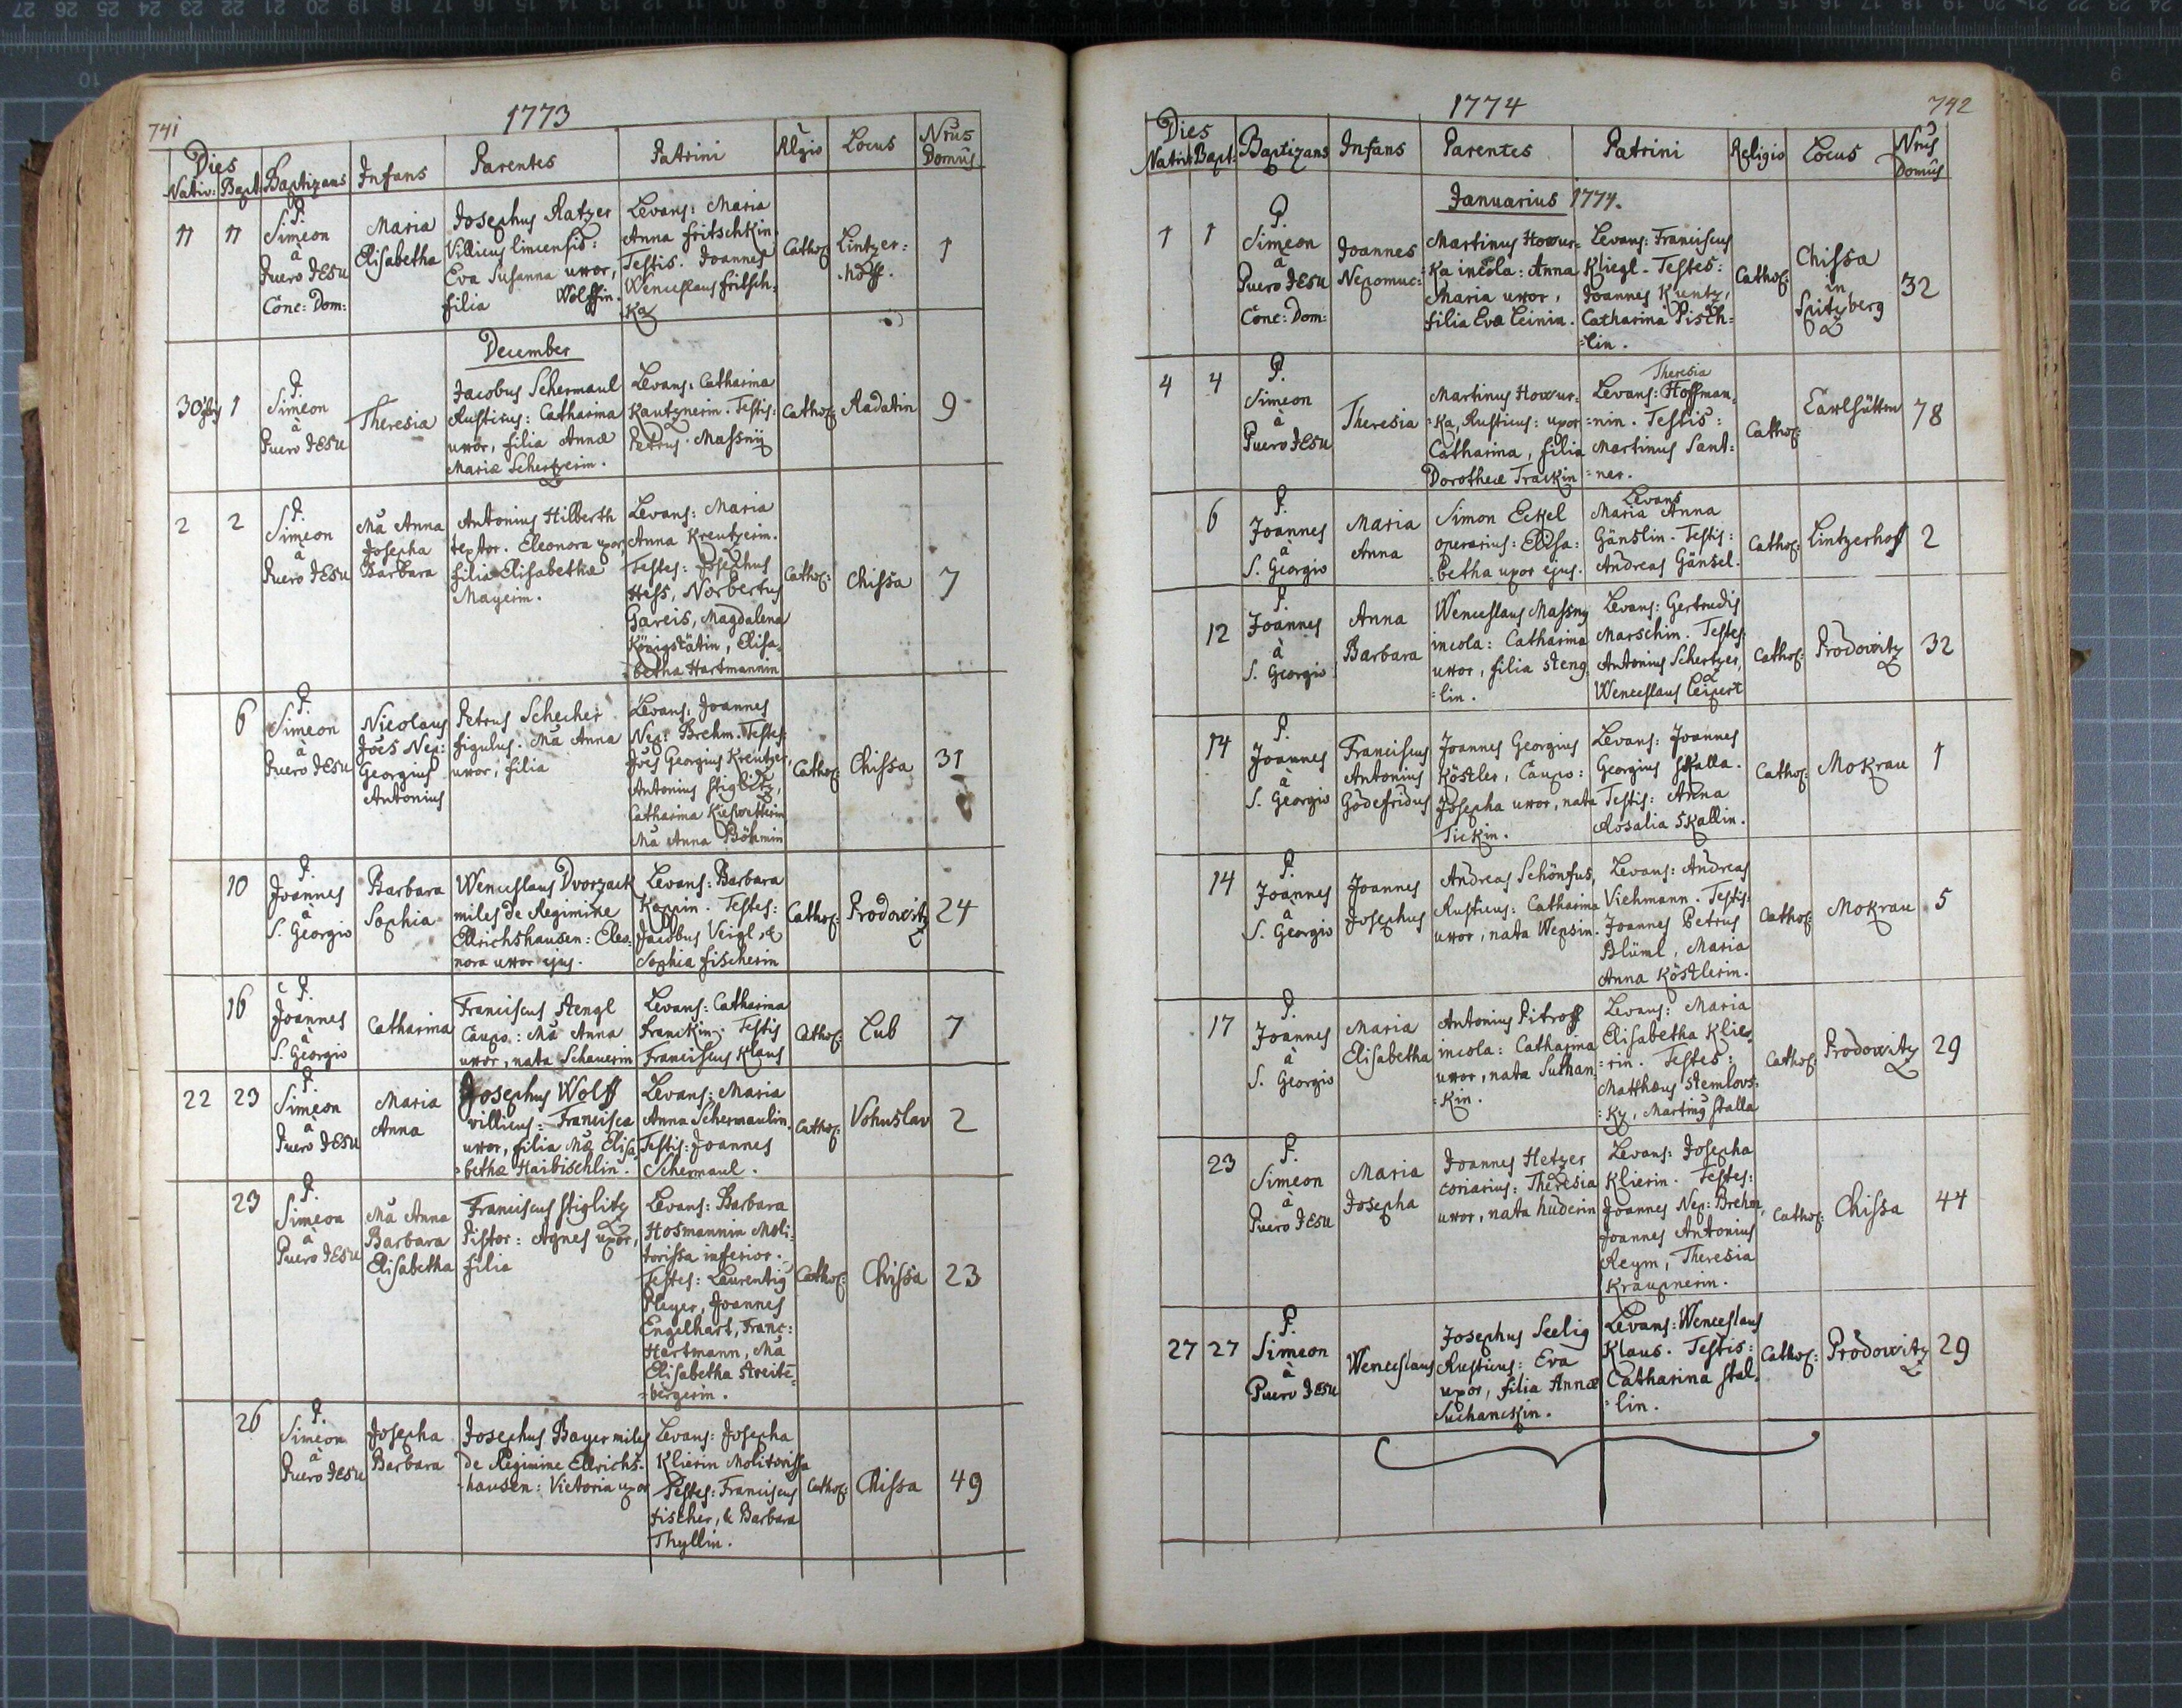 741
1773
Dies
Nativ: Bapt: Baptizans Infans Parentes Patrini Rlgio Locus Nrus Domûs
11 11
P. Simeon
à
Puero JEsu
Conc: Dom:
Maria
Elisabetha
Josephus Ratzer
Villicus lincensis:
Eva Susanna uxor,
filia Wolffin.
Levans: Maria
Anna Fritschkin.
Testis. Joannes
Wenceslaus Fritsch=
Ka
Cathol:
Lintzer=
Hoff.
1
December
30 9bris 1
P.
Simeon
à
Puero JEsu
Theresia
Jacobus Schermaul
Rusticus: Catharina
uxor, filia Annæ
Mariæ Schertzerin.
Levans: Catharina
Kautznerin. Testis:
Petrus Massnÿ
Cathol:
Radatin
9
2 2
P.
Simeon
à
Puero JEsu
Mā Anna
Josepha
Barbara
Antonius Hilberth
textor. Eleonora uxor,
filia Elisabethæ
Mayerin.
Levans: Maria
Anna Kreutzerin.
Testes: Josephus
Hess, Norbertus
Gareis, Magdalena
Königstätin, Elisa=
betha Hartmannin
Cathol:
Chissa
7
6
P.
Simeon
à
Puero JEsu
Nicolaus
Joēs Nep:
Georgius
Antonius
Petrus Schecher
figulus. Mā Anna
uxor, filia
Levans, Joannes
Nep: Brehm. Testes:
Joēs Georgius Kreutzer,
Antonius Stiglitz,
Catharina Kieswetterin
Mā Anna Böhmin
Cathol:
Chissa
31
10
P.
Joannes
à
S. Georgio
Barbara
Sophia
Wenceslaus Dvorzack
miles de Regimine
Ellrichshausen: Eleo=
nora uxor ejus.
Levans: Barbara
Kappin. Testes:
Jacobus Veigl, &
Sophia Fischerin
Cathol:
Prodowitz
24
16
P.
Joannes
à
S. Georgio
Catharina
Franciscus Stengl
Caupo: Mā Anna
uxor, nata Schauerin
Levans: Catharina
Franckin. Testis
Franciscus Klaus
Cathol:
Lub
7
22 23
P.
Simeon
à
Puero JEsu
Maria
Anna
Josephus Wolff
villicus: Francisca
uxor, filia Mæ Elisa=
bethæ Haibischlin.
Levans: Maria
Anna Schermaulin.
Testis: Joannes
Schermaul.
Cathol:
Vohuslav
2
23
P.
Simeon
à
Puero JEsu
Mā Anna
Barbara
Elisabetha
Franciscus Stiglitz
Pistor: Agnes uxor,
filia
Levans: Barbara
Hosmannin Moli=
torissa inferior.
Testes: Laurentiq
Pleyer, Joannes
Engelhart, Franc:
Hartmann, Mā
Elisabetha Streite=
=bergerin.
Cathol:
Chissa
23
26
P.
Simeon
à
Puero JEsu
Josepha
Barbara
Josephus Bayer miles
de Regimine Ellrichs=
=hausen: Victoria uxor
Levans: Josepha
Klierin Molitorissa
Testes: Franciscus
Fischer, & Barbara
Thyllin.
Cathol:
Chissa
49
1774
742
Dies
Nativ: Bapt: Baptizans Infans Parentes Patrini Religio Locus Nrus Domûs
Januarius 1774.
1 1
P.
Simeon
à
Puero JEsu
Conc: Dom:
Joannes
Nepomuc:
Martinus Howur=
Ka incola: Anna
Maria uxor,
filia Evæ Leinin.
Levans: Franciscus
Kliegl. Testes:
Joannes Kuntz,
Catharina Pisch=
=lin.
Cathol:
Chissa
in
Spitzberg
32
4 4
P.
Simeon
à
Puero JEsu
Theresia
Martinus Howur=
=Ka, Rusticus: uxor
Catharina, filia
Dorotheæ Trackin
Theresia
Levans: Hoffman=
=nin. Testis:
Martinus Sant=
=ner.
Cathol:
Earlhütten
78
6
P.
Joannes
à
S. Georgio
Maria
Anna
Simon Eckel
operarius: Elisa=
betha uxor ejus.
Levans
Maria Anna
Gänslin. Testis:
Andreas Gänsel.
Cathol:
Lintzerhoff
2
12
P.
Joannes
à
S. Georgio
Anna
Barbara
Wenceslaus Massny
incola: Catharina
uxor, filia Steng=
=lin.
Levans: Gertrudis
Marschin. Testes:
Antonius Schertzer,
Wenceslaus Leipert
Cathol:
Prodowitz
32
14
P.
Joannes
à
S. Georgio
Franciscus
Antonius
Godefridus
Joannes Georgius
Köstler, Caupo:
Josepha uxor, nata
Tickin.
Levans: Joannes
Georgius Skalla.
Testis: Anna
Rosalia Skallin.
Cathol:
Mokrau
1
14
P.
Joannes
à
S. Georgio
Joannes
Josephus
Andreas Schönfus,
Rusticus: Catharina
uxor, nata Wepsin.
Levans: Andreas
Viehmann. Testis:
Joannes Petrus
Blüml, Maria
Anna Köstlerin.
Cathol:
Mokrau
5
17
P.
Joannes
à
S. Georgio
Maria
Elisabetha
Antonius Pitroff
incola: Catharina
uxor, nata Suthan
=Kin.
Levans: Maria
Elisabetha Klie=
=rin. Testes:
Matthæus Stemlovs=
=ky, Martinq Stalla
Cathol:
Prodowitz
29
23
P.
Simeon
à
Puero JEsu
Maria
Josepha
Joannes Hetzer
coriarius: Theresia
uxor, nata Huderin
Levans: Josepha
Klierin. Testes:
Joannes Nep: Brehm,
Joannes Antonius
Reym, Theresia
Kraupnerin.
Cathol:
Chissa
44
27 27
P.
Simeon
à
Puero JEsu
Wenceslaus
Josephus Seelig
Rusticus: Eva
uxor, filia Annæ
Suchanckin.
Levans: Wenceslaus
Klaus. Testis:
Catharina Stal=
=lin.
Cathol:
Prodowitz
29